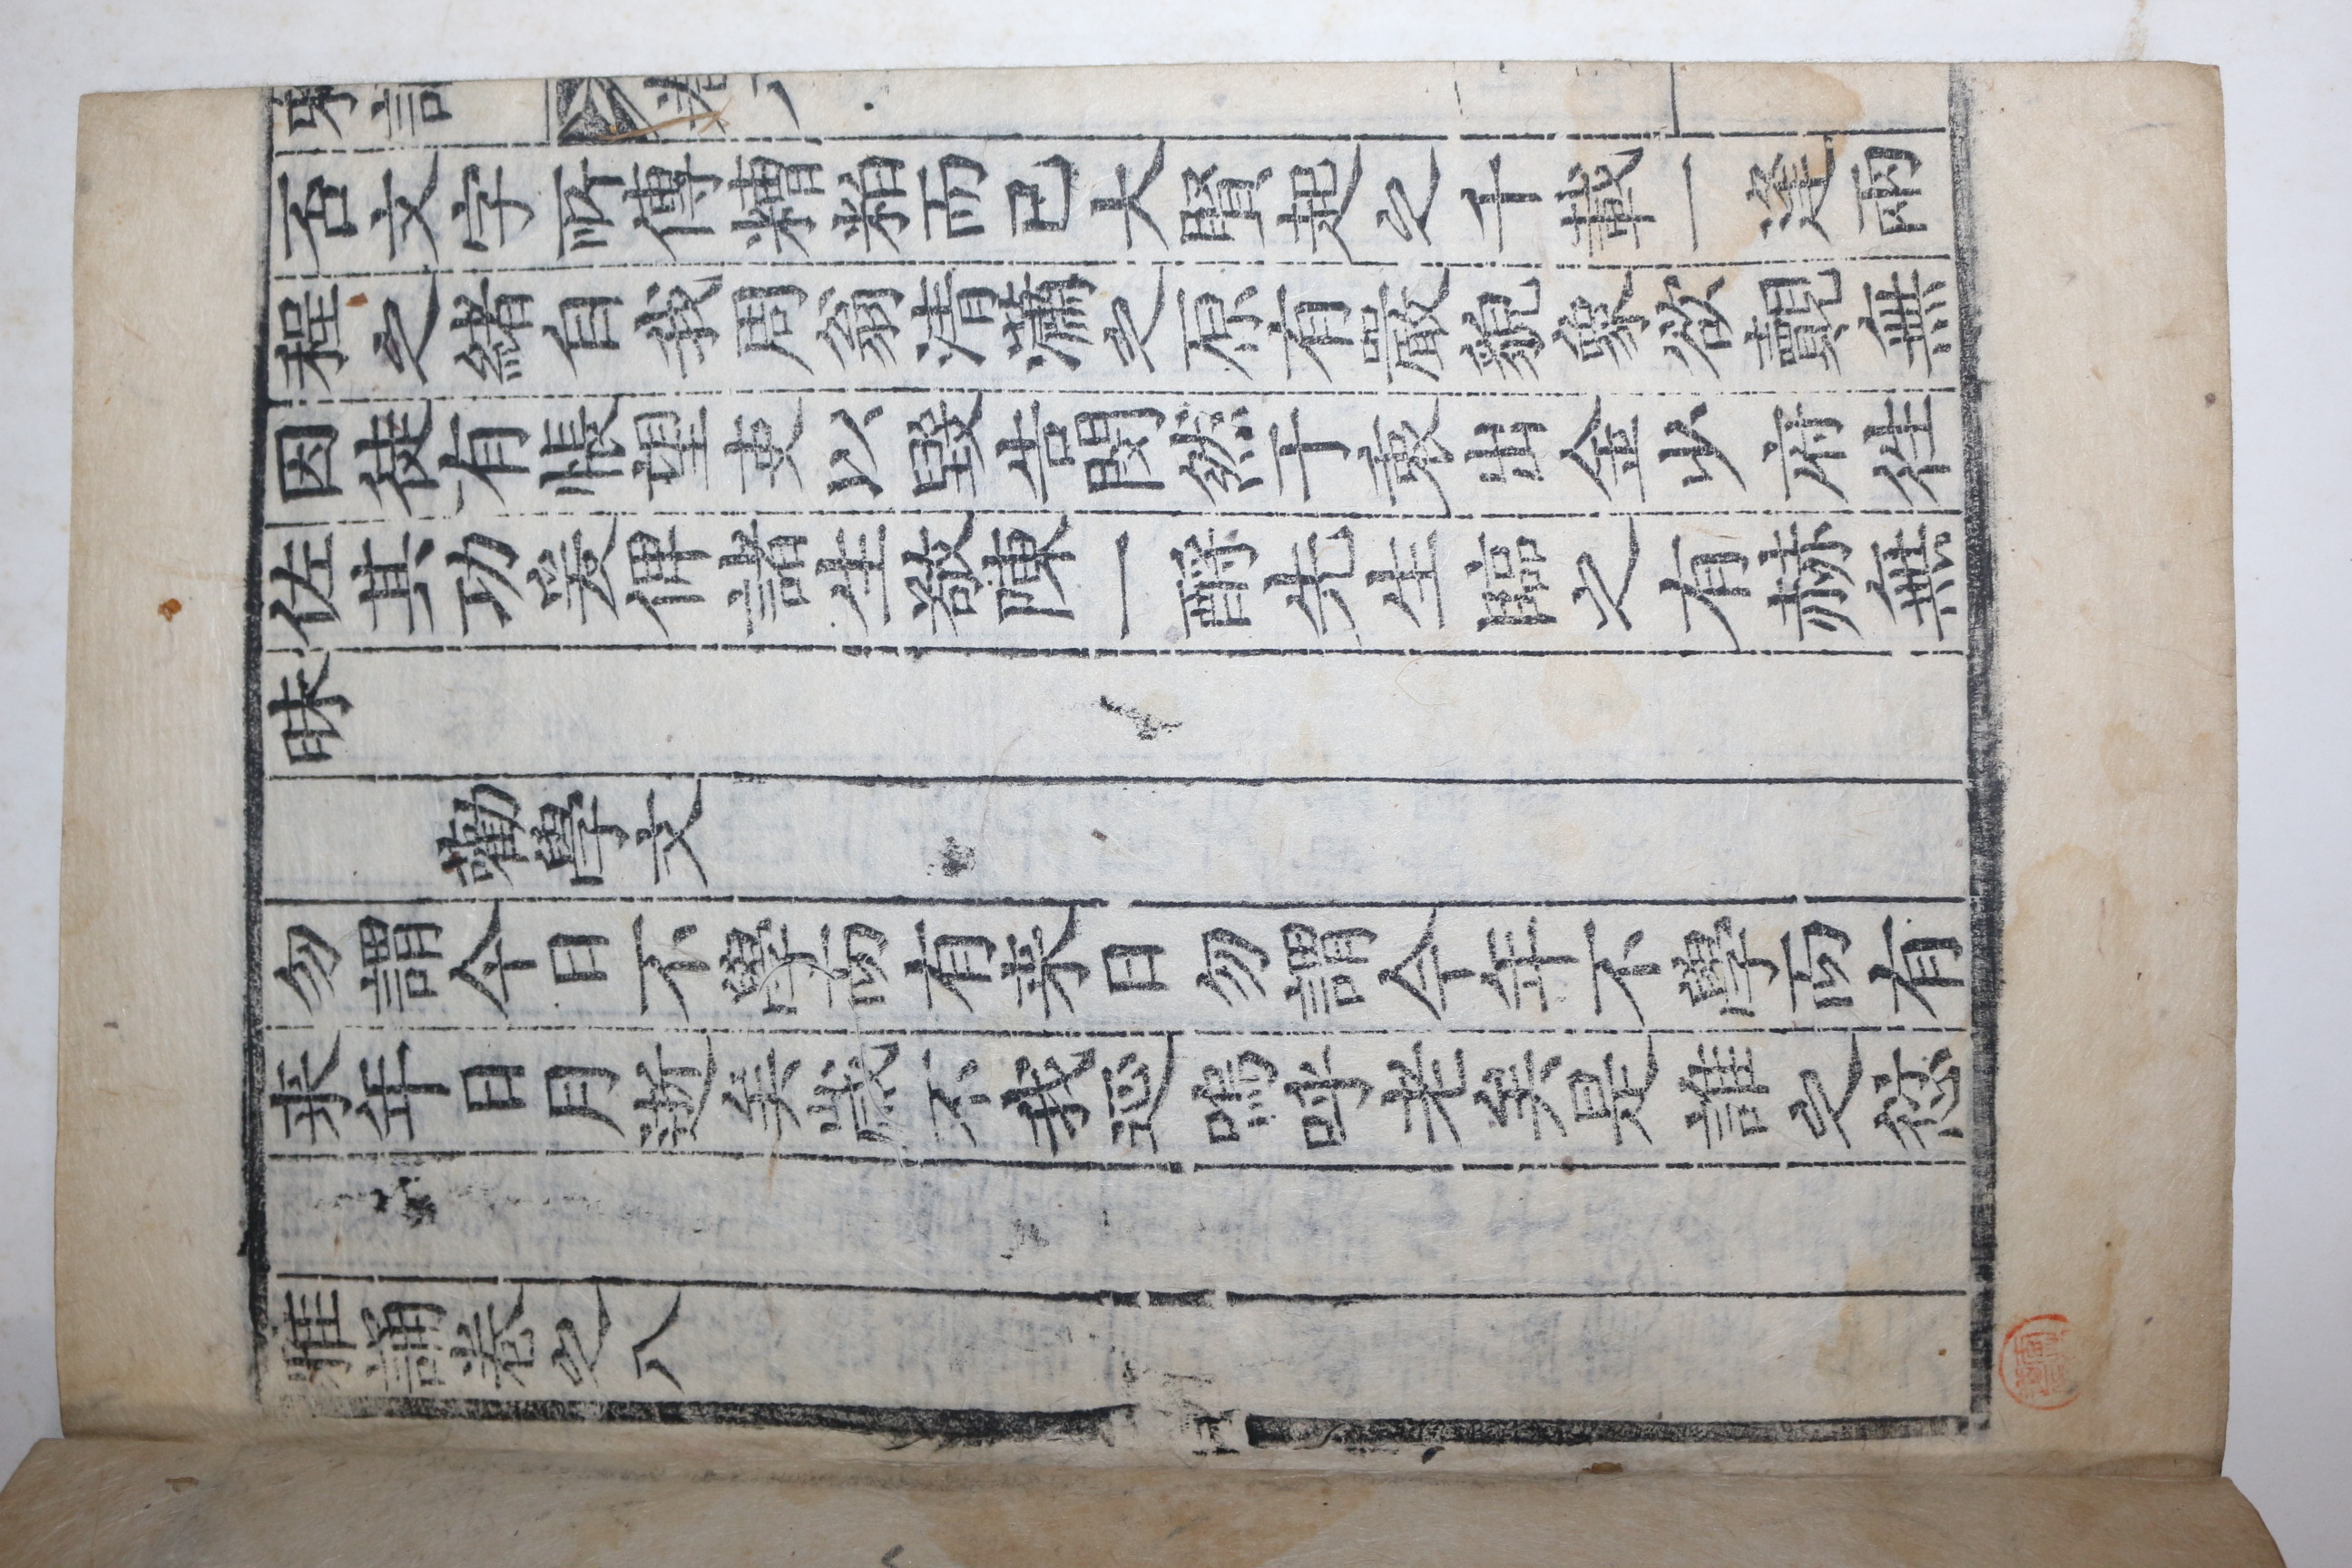 雅誦 卷八
否文字所傳糟粕而已大賢起之千載一逢兩
程之緒自我周翁清瀟之原有嚴貌象欲覿無
因徒有悵望吏以毀告閔然于衷出金少府往
佐其功爰俾諸生敬陳一酹先生臨之有赫無
昧
勸學文
勿謂今日不學而有来日勿謂今年不學而有
来年日月逝矣歲不我延嗚呼老矣是誰之愆
雅誦卷之八